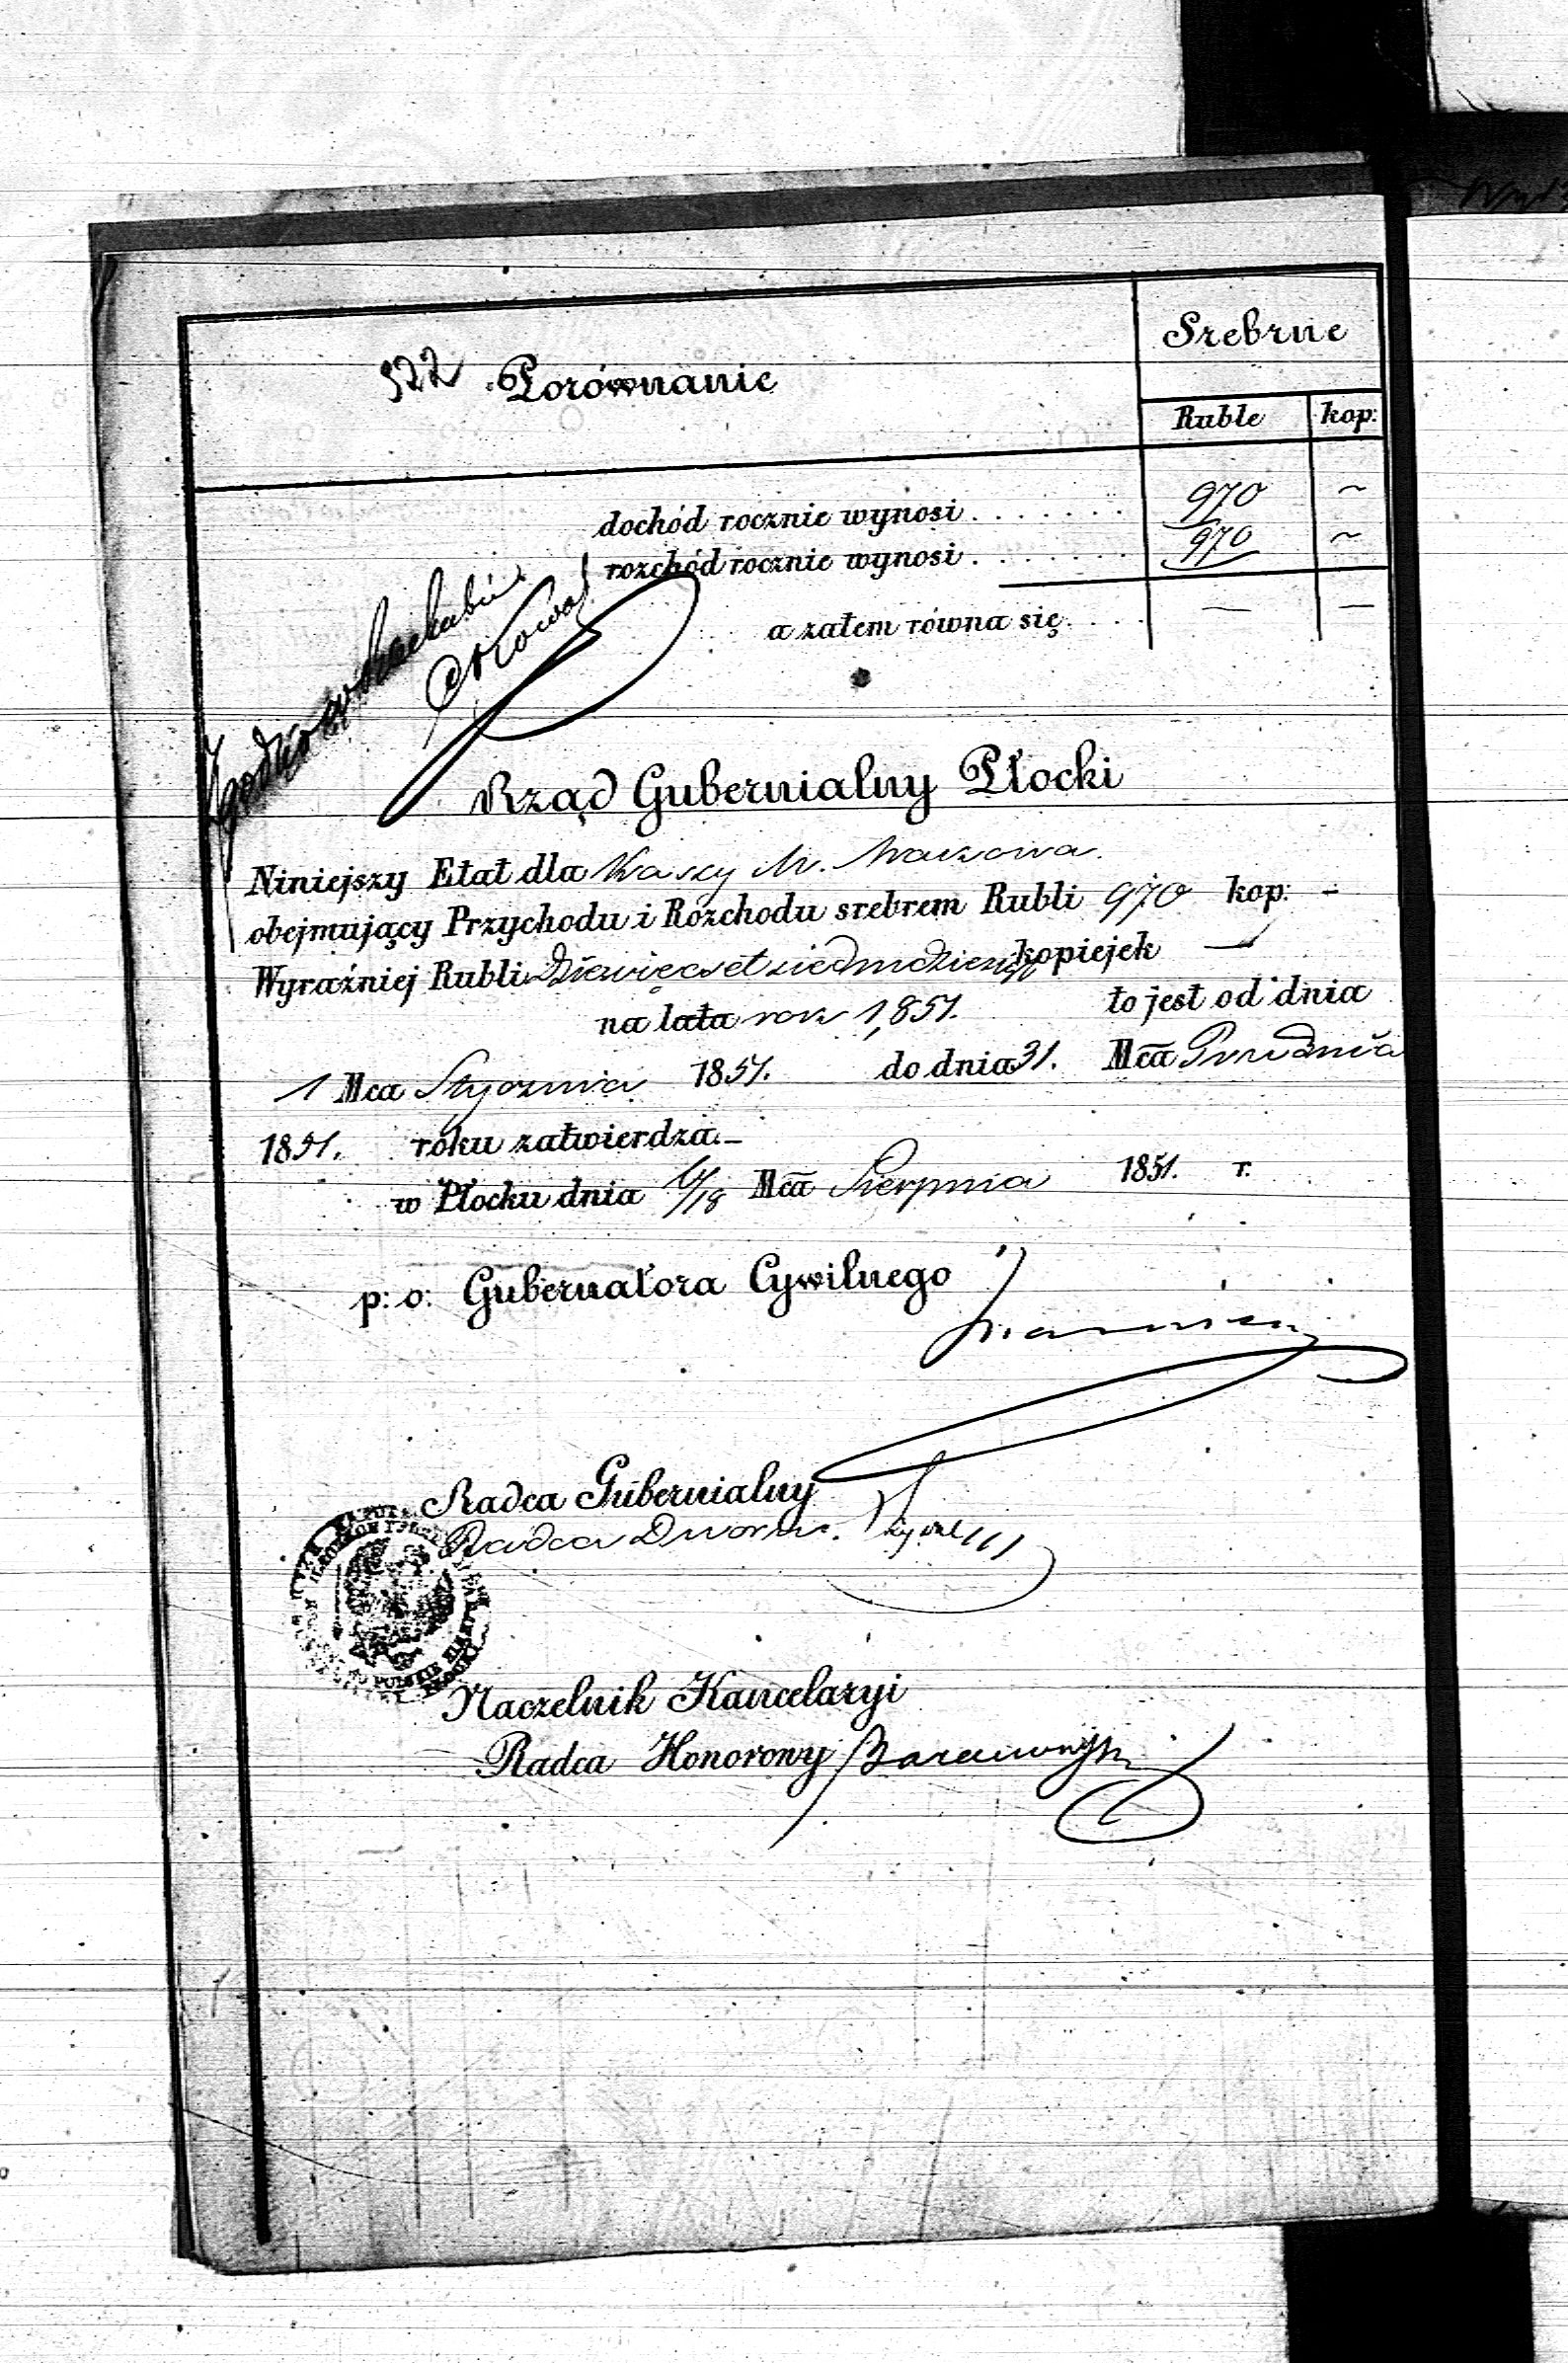 Srebrne
522 Porównanie
Ruble kop:
dochód rocznie wynosi . . . . . . . 970 ~
rozchód rocznie wynosi . . . . . . . 970 ~
a zatem równa się. . . . — —
Rząd Gubernialny Płocki
Niniejszy Etat dla Kassy M. Makowa.
obejmujący Przychodu i Rozchodu srebrem Rubli 970 kop: -
Wyraźniej Rubli Dziewięćset siedmdziesiąt kopiejek —
na lata rok 1,851. to jest od dnia
1 Mca Stycznia 1851. do dnia 31. Mca Grudnia
1851. roku zatwierdza._
w Płocku dnia 6/18 Mca Sierpnia 1851. r.
p: o: Gubernatora Cywilnego
Radca Gubernialny
Radca Dworu.
Naczelnik Kancelaryi
Radca Honorowy